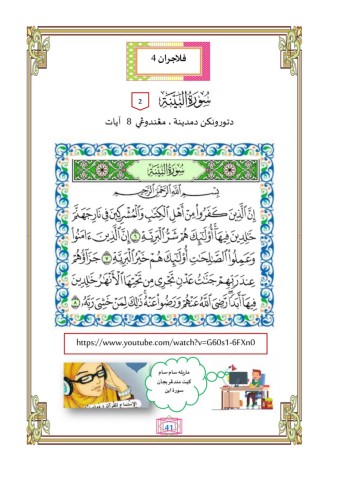 ڤلاجرن 4
سُورَةُ البَيِّنَةِ
2
دتورونكن دمدينة ، مڠندوڠي 8 آيات
سُورَةُ البَيِّنَةِ
بِسْمِ اللَّهِ الرَّحْمَٰنِ الرَّحِيمِ
إِنَّ الَّذِينَ كَفَرُوا مِنْ أَهْلِ الْكِتَابِ وَالْمُشْرِكِينَ فِي نَارِ جَهَنَّمَ
خَالِدِينَ فِيهَا أُولَٰئِكَ هُمْ شَرُّ الْبَرِيَّةِ ٦ إِنَّ الَّذِينَ ءَامَنُوا
وَعَمِلُوا الصَّالِحَاتِ أُولَٰئِكَ هُمْ خَيْرُ الْبَرِيَّةِ ٧ جَزَاؤُهُمْ
عِندَ رَبِّهِمْ جَنَّاتُ عَدْنٍ تَجْرِي مِن تَحْتِهَا الْأَنْهَارُ خَالِدِينَ
فِيهَا أَبَدًا رَّضِيَ اللَّهُ عَنْهُمْ وَرَضُوا عَنْهُ ذَٰلِكَ لِمَنْ خَشِيَ رَبَّهُ ٨
https://www.youtube.com/watch?v=G60s1-6FXn0
ماريله سام-سام
كيت مندڠرنجان
سورة اين
41